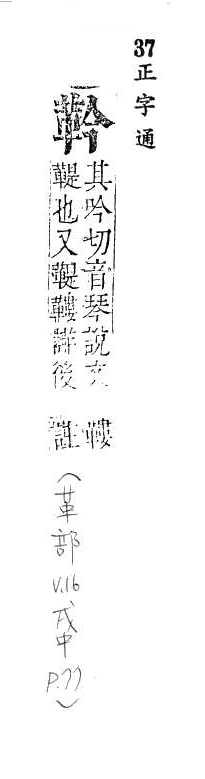 37正字通
靲
其吟切音琴說文
鞮也又鞮鞻詳後
鞻
註
(革部 V.16 戌中 P.77)